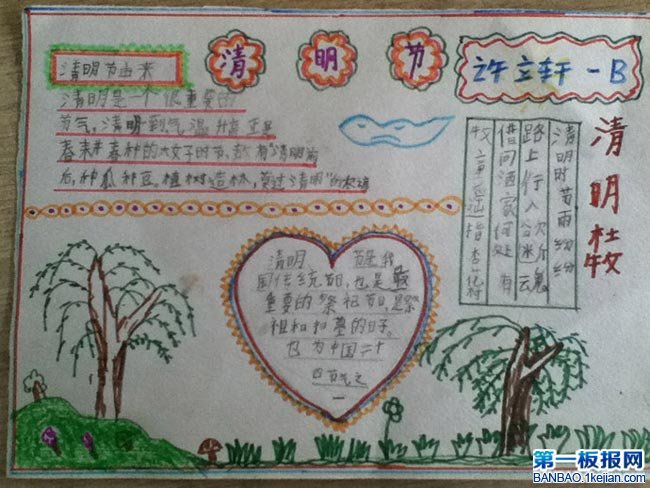 清明节
许立轩一B
清明节由来
清明是一个很重要的
节气,清明到气温升高正是
春耕春种的大好时节,故有"清明前
后,种瓜种豆。植树造林,莫过清明"的农谚
清明杜牧
清明时节雨纷纷
路上行人欲断魂
借问酒家何处有
牧童遥指杏花村
清明节是我
国传统节日,也是最
重要的祭祀节日,是祭
祖和扫墓的日子。
也为中国二十
四节气之
一
第一板报网
BANBAO.1kejian.com